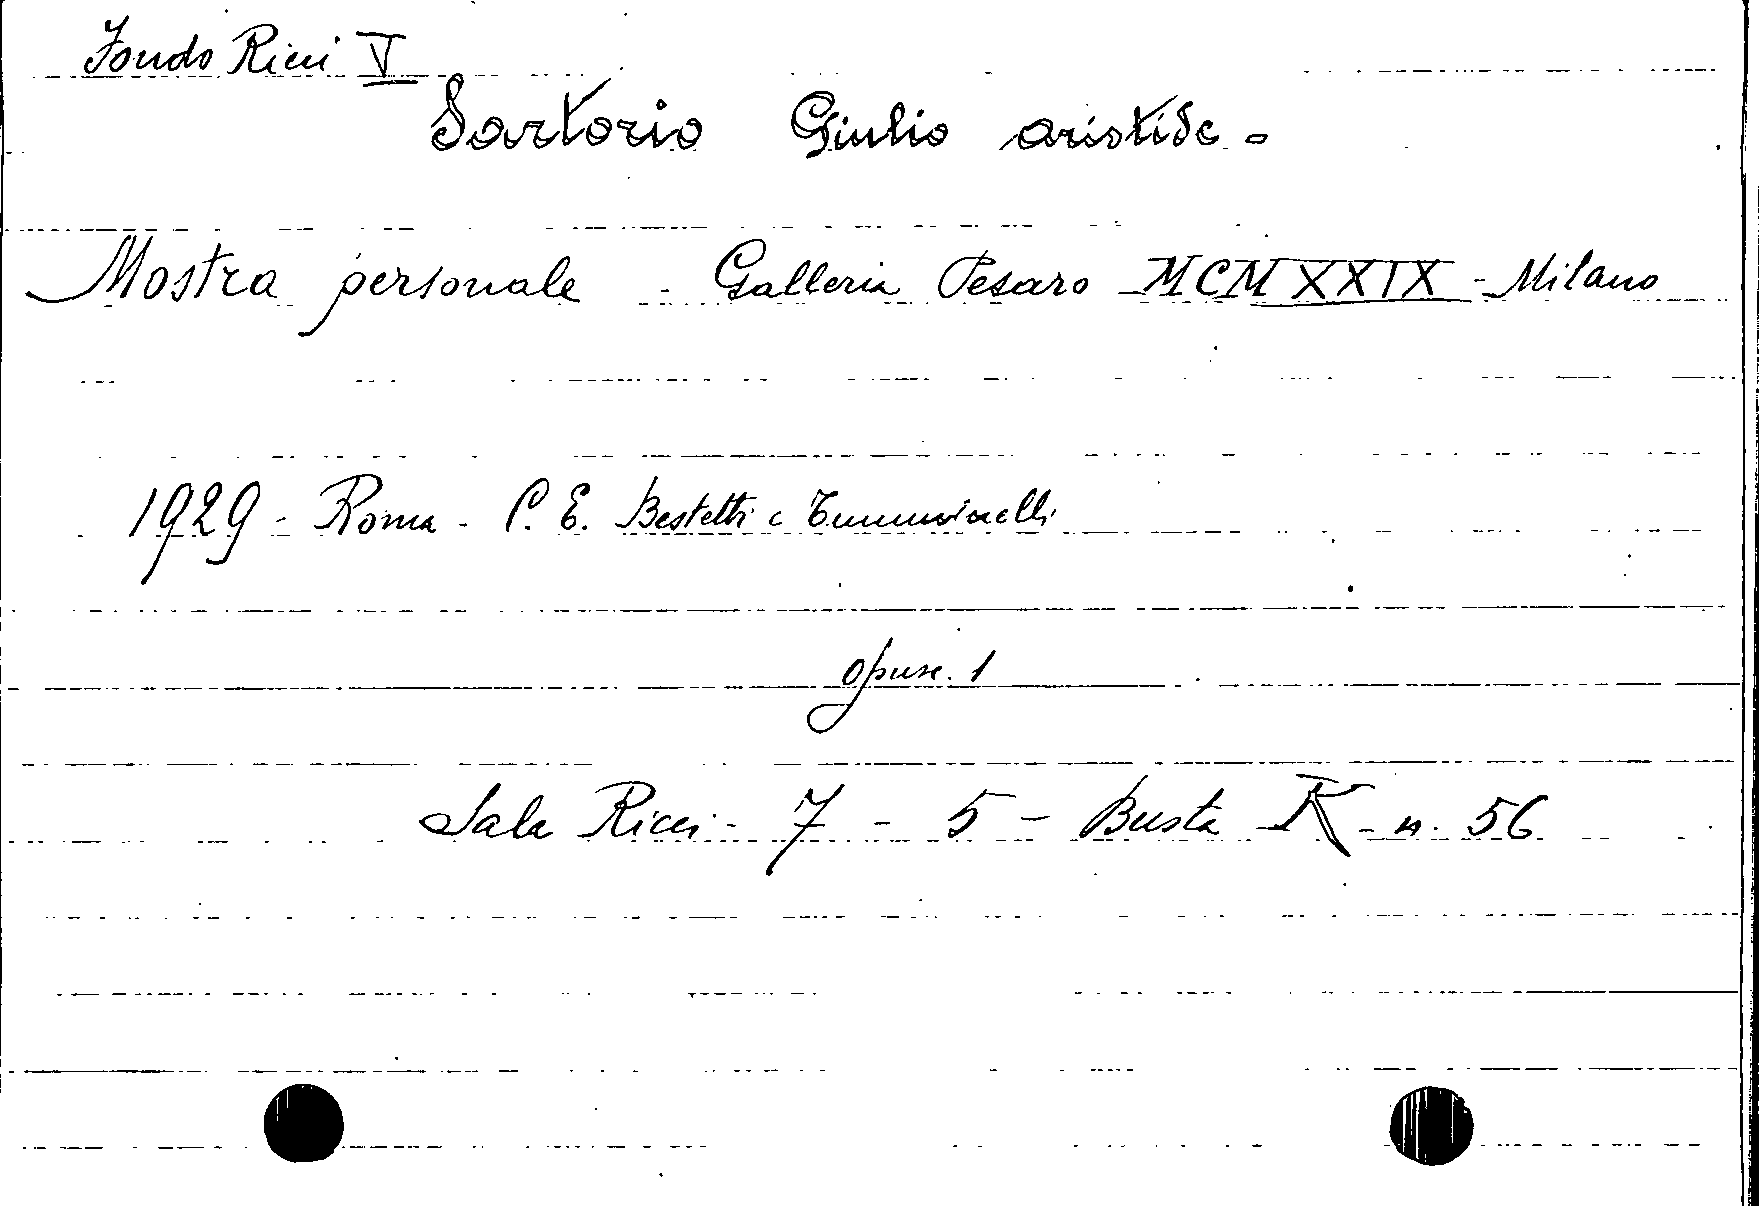 Fondo Ricci V
Sartorio Giulio Aristide -
Mostra personale - Galleria Pesaro MCMXXIX - Milano
1929 - Roma - C. E. Bestetti e Tumminelli
opusc. 1
Sala Ricci - 7 - 5 - Busta K - n. 56